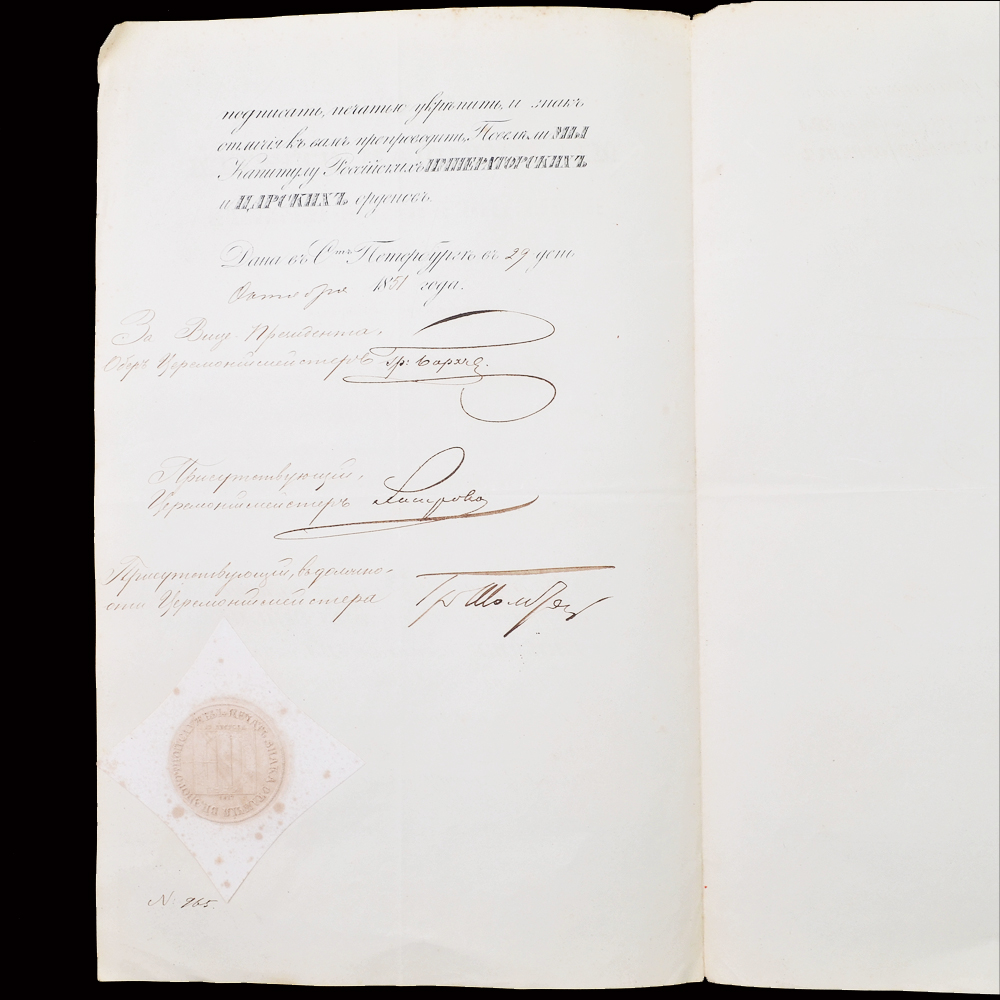 подписать, печатью укрѣпить, и знакъ
отличія къ вамъ препроводить, Повелѣли МЫ
Капитулу Россійскихъ ИМПЕРАТОРСКИХЪ
и ЦАРСКИХЪ орденовъ.
Дана въ Стъ Петербургѣ въ 29 день
Октября 1851 года.
За Вице-Президента,
Оберъ Церемоніймейстеръ Гр:
Присутствующій,
Церемоніймейстеръ
Присутствующій, въ должно-
сти Церемоніймейстера Гр
ПЕЧАТЬ ЗНАКА ОТЛИЧІЯ БЕЗПОРОЧНОЙ СЛУЖБЫ
N: 965.